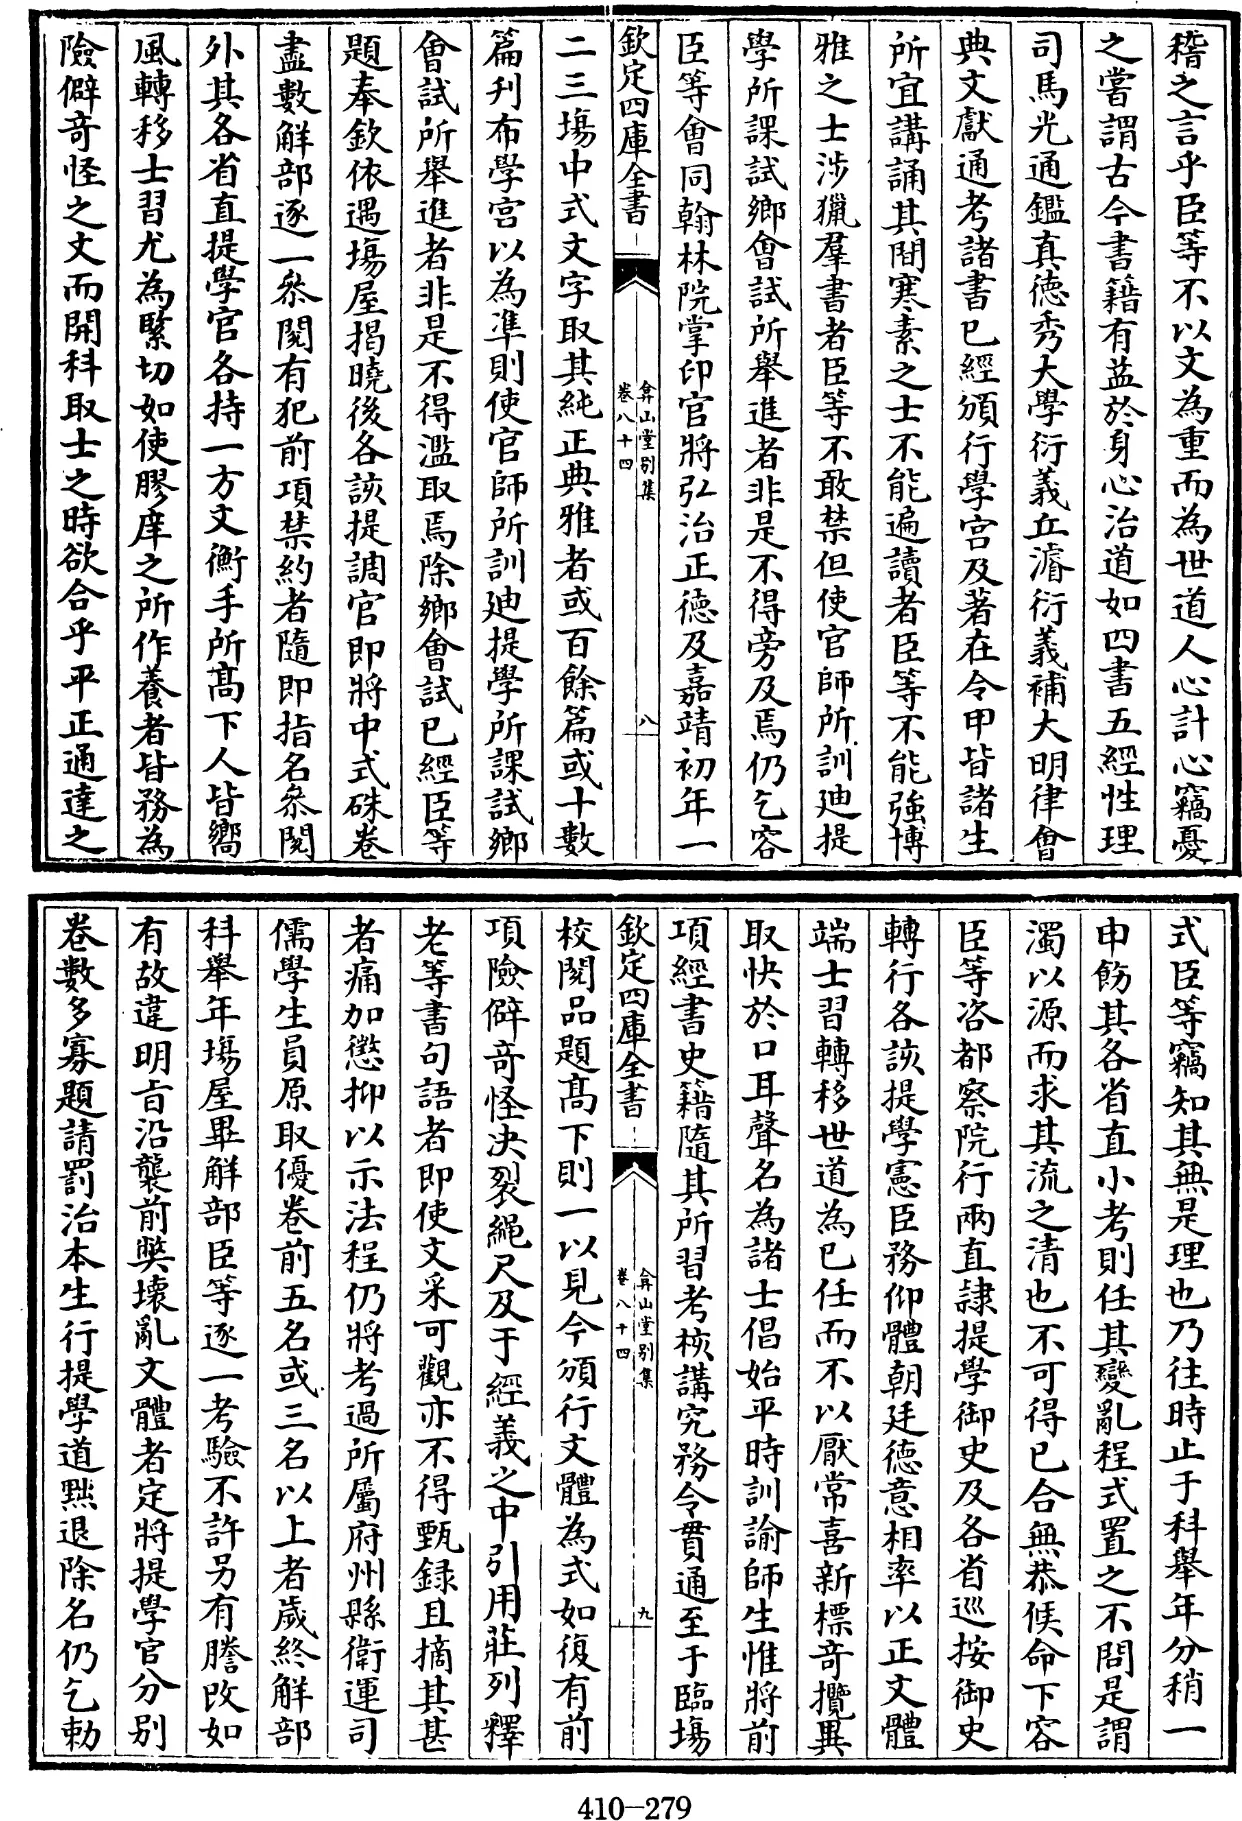 稽之言乎臣等不以文為重而為世道人心計心竊憂
之嘗謂古今書籍有益於身心治道如四書五經性理
司馬光通鑑真德秀大學衍義丘濬衍義補大明律會
典文獻通考諸書已經頒行學宮及著在令甲皆諸生
所宜講誦其間寒素之士不能遍讀者臣等不能強博
雅之士涉獵羣書者臣等不敢禁但使官師所訓廸提
學所課試鄉會試所舉進者非是不得旁及焉仍乞容
臣等會同翰林院掌印官將弘治正德及嘉靖初年一
欽定四庫全書
弇山堂别集
卷八十四
八
二三塲中式文字取其純正典雅者或百餘篇或十數
篇刋布學宫以為凖則使官師所訓廸提學所課試鄉
會試所舉進者非是不得濫取焉除鄉會試已經臣等
題奉欽依遇塲屋揭曉後各該提調官即將中式硃卷
盡數解部逐一叅閱有犯前項禁約者隨即指名叅閱
外其各省直提學官各持一方文衡手所髙下人皆嚮
風轉移士習尤為緊切如使膠庠之所作養者皆務為
險僻奇怪之文而開科取士之時欲合乎平正通達之
式臣等竊知其無是理也乃往時止于科舉年分稍一
申飭其各省直小考則任其變亂程式置之不問是謂
濁以源而求其流之清也不可得已合無恭候命下容
臣等咨都察院行兩直隷提學御史及各省廵按御史
轉行各該提學憲臣務仰體朝廷德意相率以正文體
端士習轉移世道為已任而不以厭常喜新標奇攬異
取快於口耳聲名為諸士倡始平時訓諭師生惟將前
項經書史籍隨其所習考核講究務令貫通至于臨塲
欽定四庫全書
弇山堂别集
卷八十四
九
校閱品題髙下則一以見今頒行文體為式如復有前
項險僻奇怪决裂繩尺及于經義之中引用莊列釋
老等書句語者即使文采可觀亦不得甄録且摘其甚
者痛加懲抑以示法程仍將考過所屬府州縣衛運司
儒學生員原取優卷前五名或三名以上者歲終解部
科舉年塲屋畢解部臣等逐一考驗不許另有謄改如
有故違明旨沿襲前獘壊亂文體者定將提學官分别
卷數多寡題請罰治本生行提學道黜退除名仍乞勅
410-279